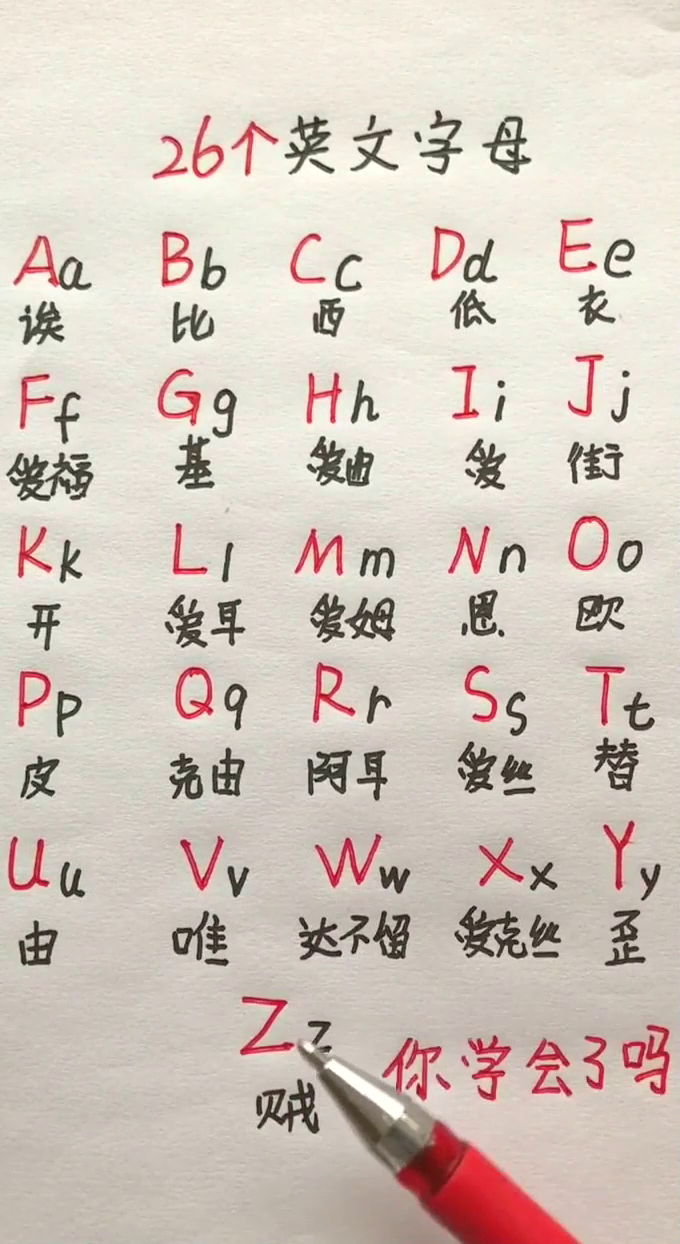 26个英文字母
Aa Bb Cc Dd Ee
诶 比 西 低 衣
Ff Gg Hh Ii Jj
爱福 基 爱曲 爱 街
Kk Ll Mm Nn Oo
开 爱耳 爱姆 恩 欧
Pp Qq Rr Ss Tt
皮 克由 阿耳 爱丝 替
Uu Vv Ww Xx Yy
由 唯 达不留 爱克丝 歪
Zz
贼
你学会了吗